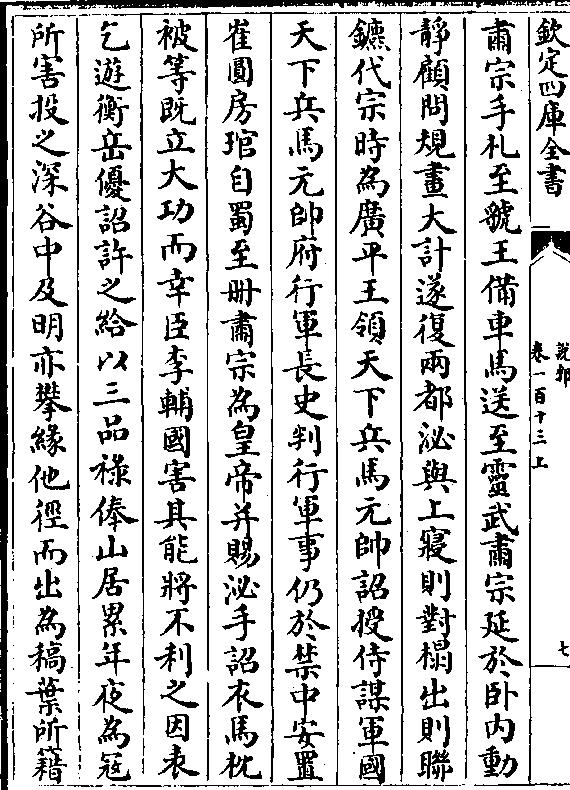 欽定四庫全書
説郛
卷一百十三上
七
肅宗手札至虢王備車馬送至靈武肅宗延於卧内動
靜顧問規畫大計遂復兩都泌與上寢則對榻出則聯
鑣代宗時為廣平王領天下兵馬元帥詔授侍謀軍國
天下兵馬元帥府行軍長史判行軍事仍於禁中安置
崔圓房琯自蜀至冊肅宗為皇帝并賜泌手詔衣馬枕
被等既立大功而幸臣李輔國害其能將不利之因表
乞遊衡岳優詔許之給以三品禄俸山居累年夜為寇
所害投之深谷中及明亦攀緣他徑而出為稿葉所籍